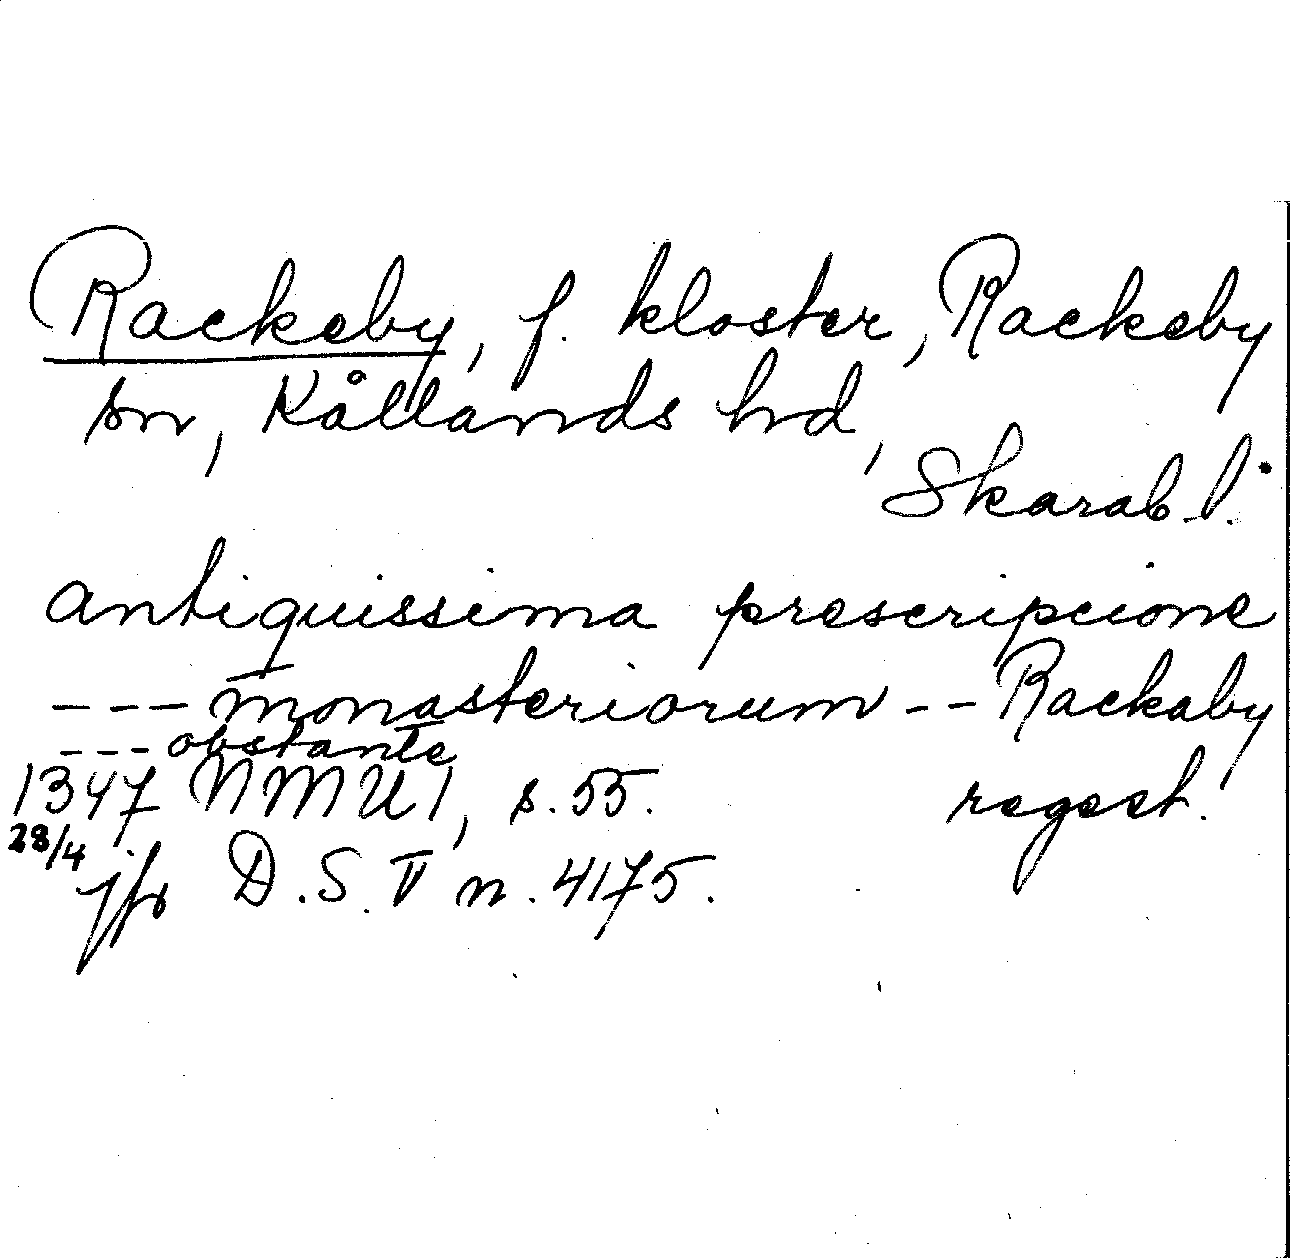 Rackeby, f. kloster, Rackeby
sn, Kållands hd,
Skarab. l.
antiquissima prescripcione
--- monasteriorum -- Rackaby
--- obstante
1347 NMU 1, s. 55. regest.
28/4
jfr D.S. V n. 4175.